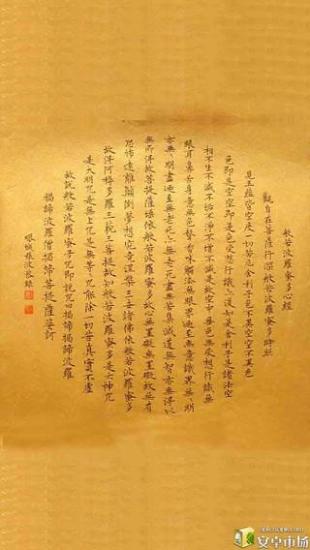 般若波羅蜜多心經
觀自在菩薩行深般若波羅蜜多時照
見五蘊皆空度一切苦厄舍利子色不異空空不異色
色即是空空即是色受想行識亦復如是舍利子是諸法空
相不生不滅不垢不淨不增不減是故空中無色無受想行識無
眼耳鼻舌身意無色聲香味觸法無眼界乃至無意識界無無明
亦無無明盡乃至無老死亦無老死盡無苦集滅道無智亦無得以
無所得故菩提薩埵依般若波羅蜜多故心無罣礙無罣礙故無有
恐怖遠離顛倒夢想究竟涅槃三世諸佛依般若波羅蜜多
故得阿耨多羅三藐三菩提故知般若波羅蜜多是大神咒
是大明咒是無上咒是無等等咒能除一切苦真實不虛
故說般若波羅蜜多咒即說咒曰揭諦揭諦波羅
揭諦波羅僧揭諦菩提薩婆訶
安卓市场